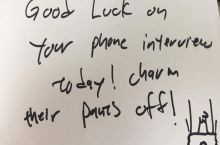 Good Luck on
Your phone interview
today! charm
their pants off!